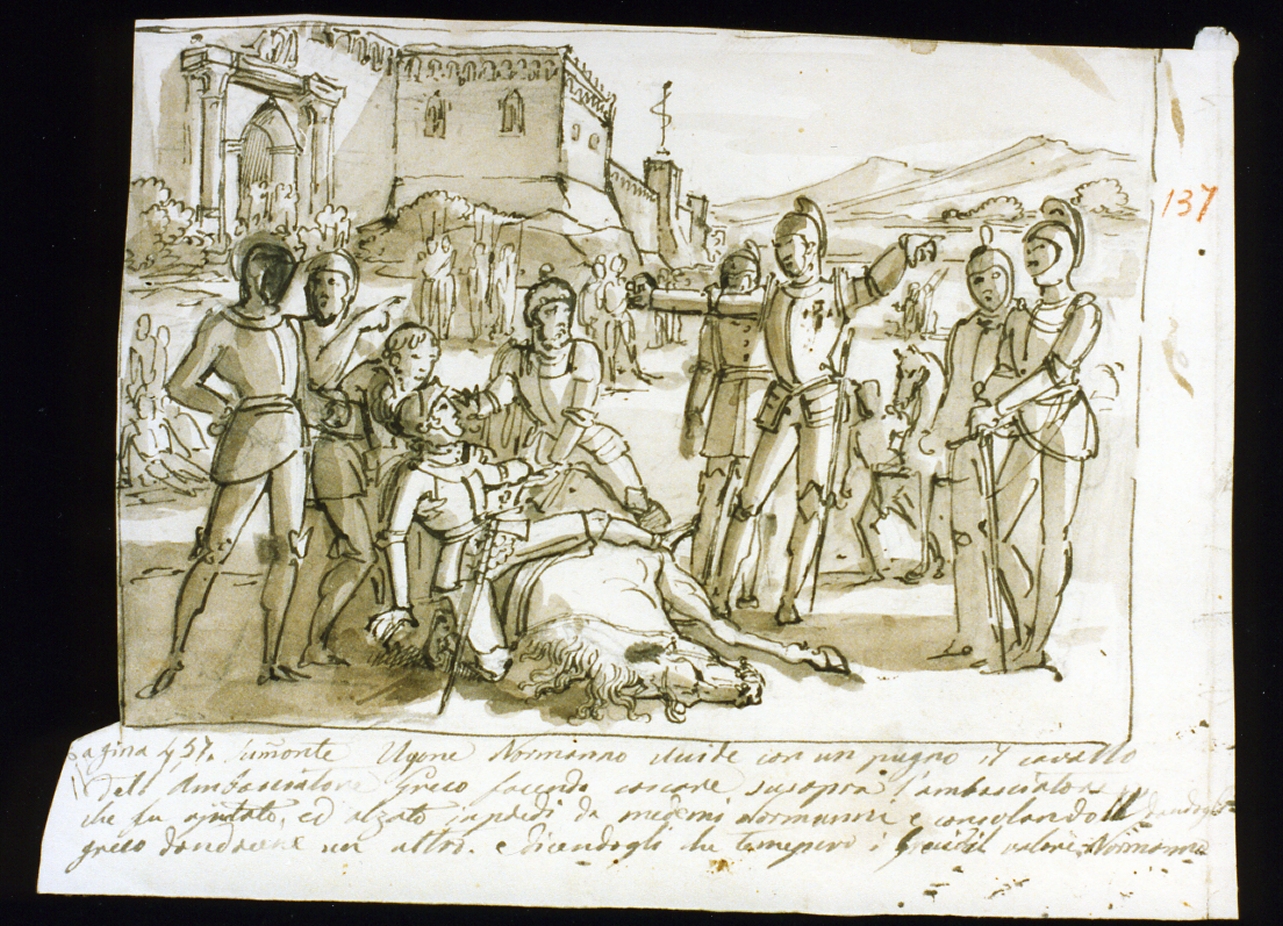 137
pagina 457. Sumonte Ugone Normanno elucide con un pugno il cavallo
dell Ambasciatore Greco facendo cascare susopra l'ambasciatore
che fu ajutato, ed alzato in piedi da medemi Normanni e consolandoll dandogli
greco dandocene un altro. e dicendogli che temepero i Greci il valore Normanno